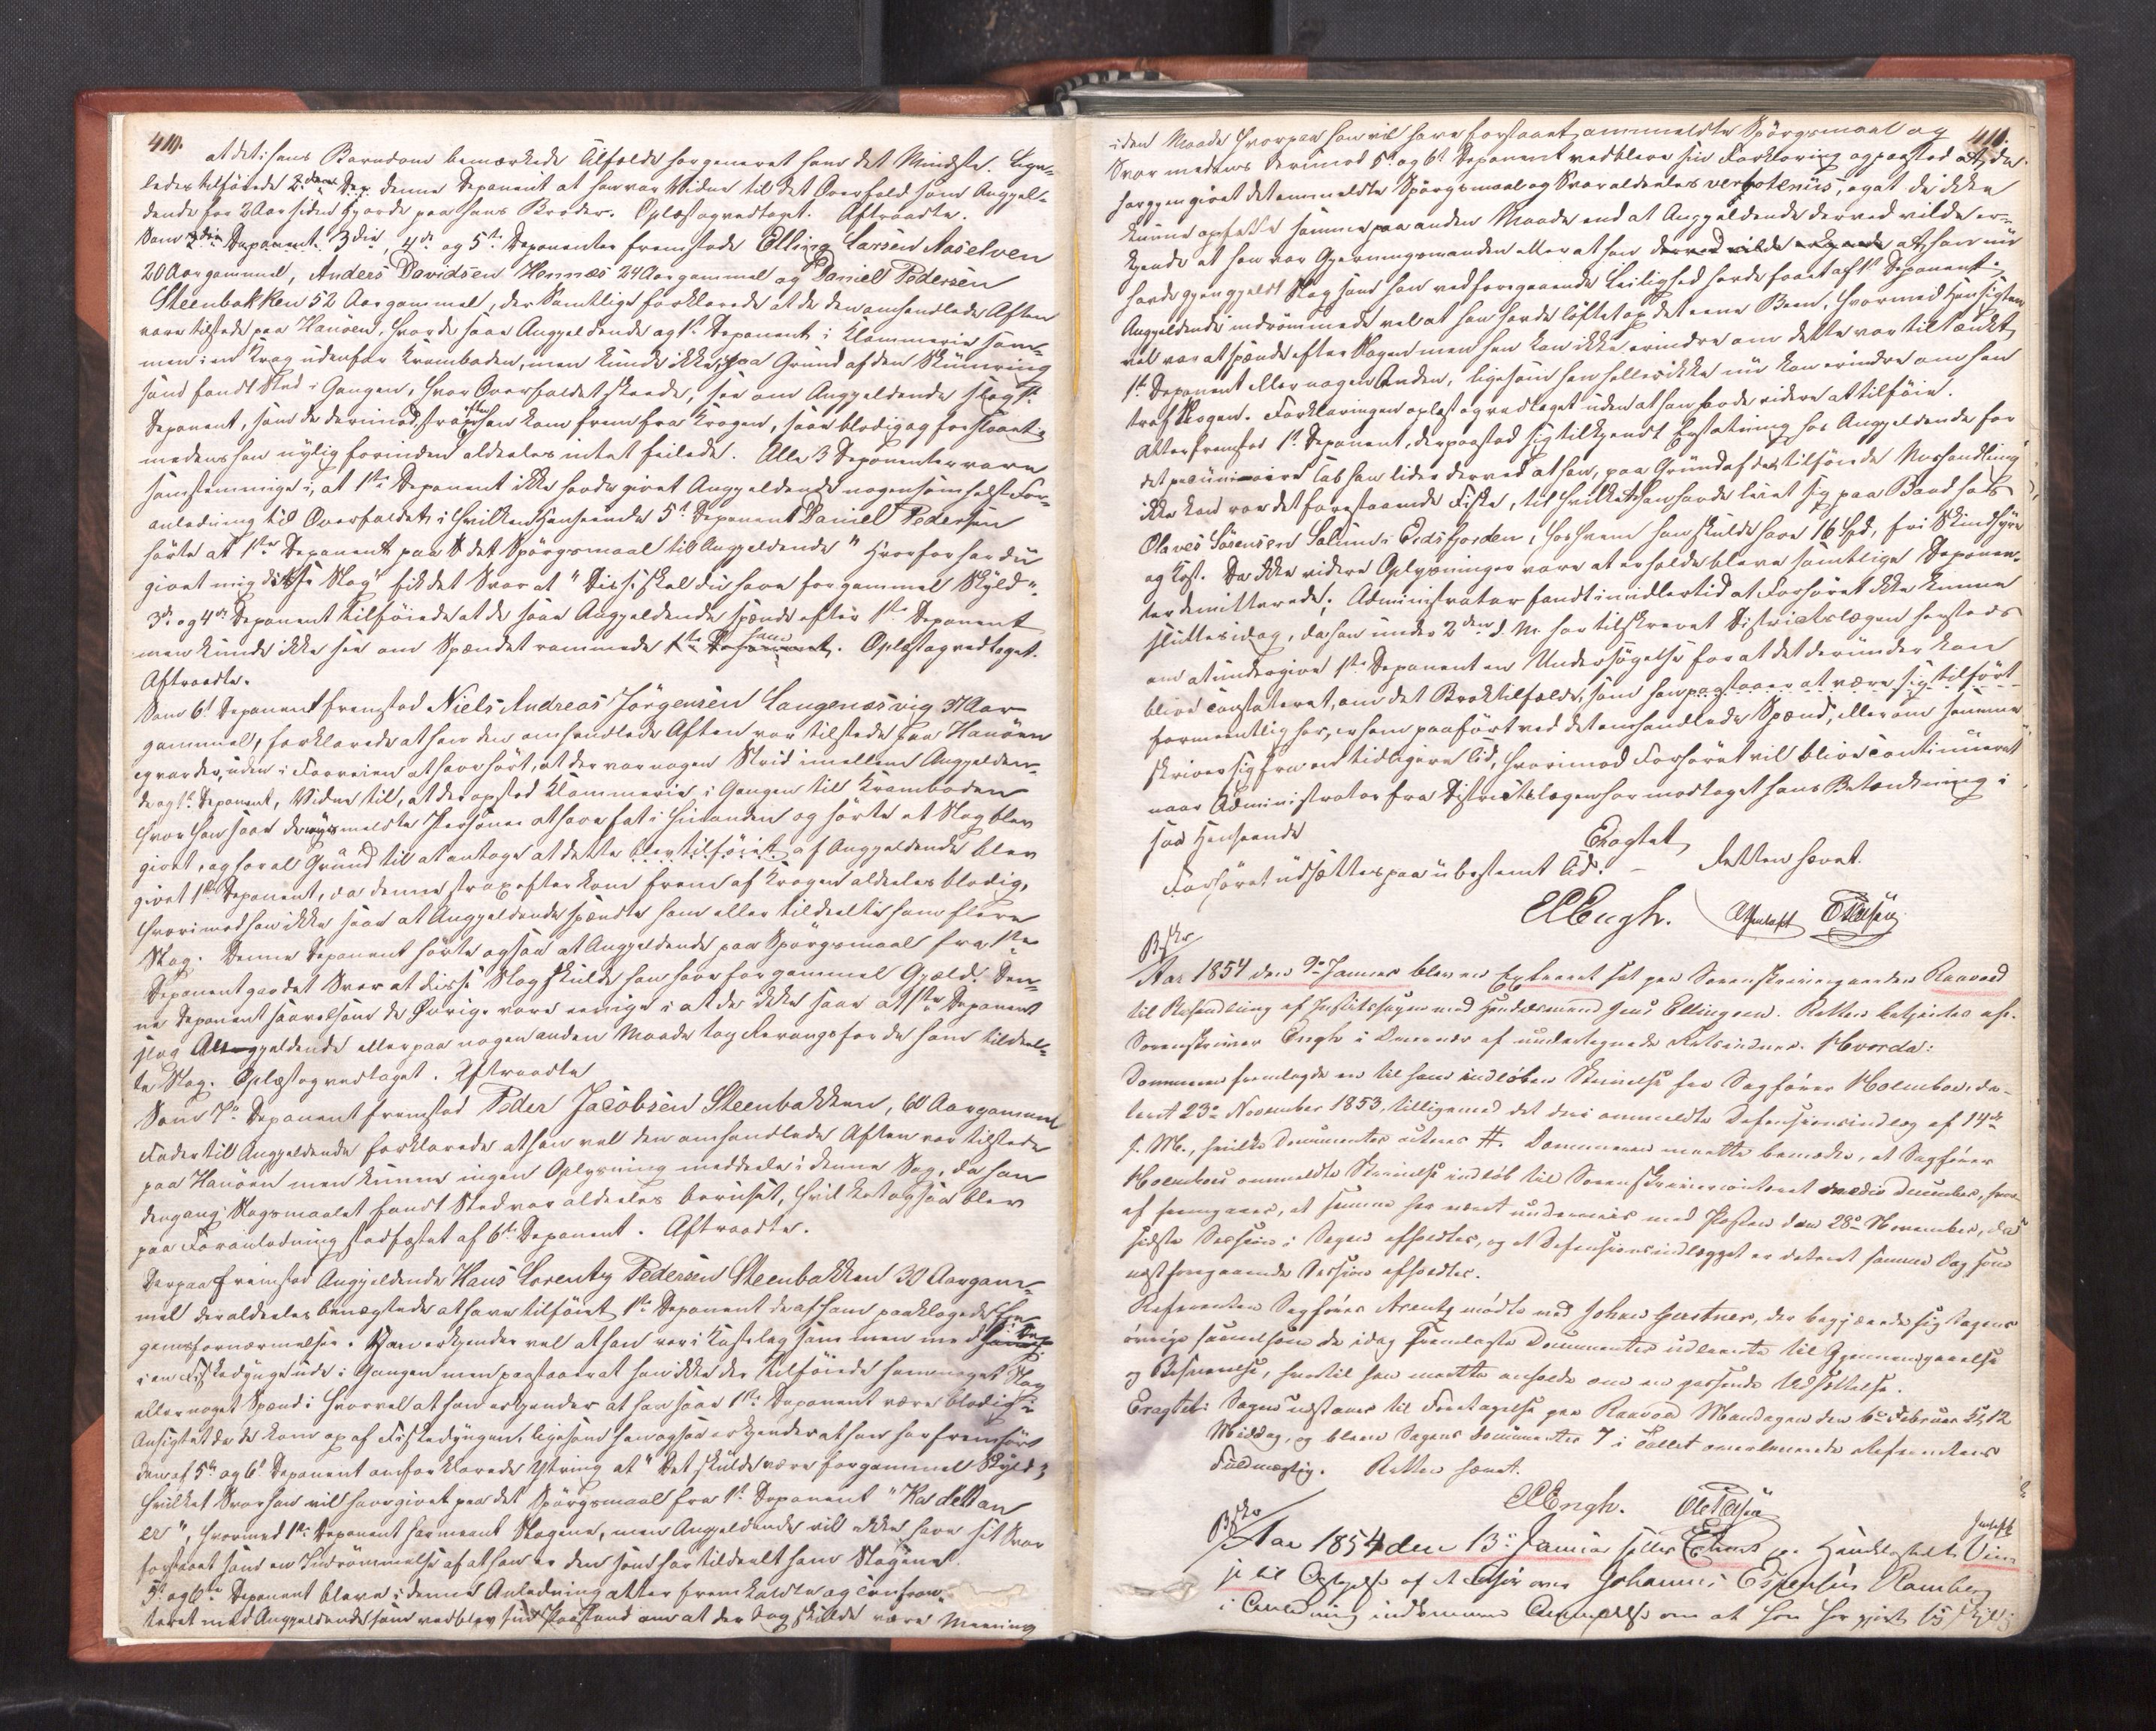 410.
at det i hans Barndom bemærkede Tilfælde har generet ham det Mindste. Lige-
ledes tilføiede denne Deponent at han var Vidne til det Overfald som Angjel-
dende for 2 Aar siden gjorde paa hans Broder. Oplæst og vedtaget. Aftraadte.
Som 3die, 4de og 5te Deponenter fremstode Elling Larsen Aaselven
20 Aar gammel, Anders Davidsen Hennæs 24 Aar gammel og Daniel Pedersen
Steenbakken 52 Aar gammel, der Samtlige forklarede at de den omhandlede Aften
vare tilstede paa Hanöen, hvor de saae Angjeldende og 1ste Deponent i Klammerie sam-
men i en Krog udenfor Kramboden, men kunde ikke, paa Grund af den Skumring
som fandt Sted i Gangen, hvor Overfaldet skeede, see om Angjeldende slog 1ste
Deponent, som de derimod strax efter han kom frem fra Krogen, saae blodig og forslaaet
medens han nylig forinden aldeles intet feilede. Alle 3 Deponenter vare
samstemmige i, at 1ste Deponent ikke havde givet Angjeldende nogensomhelst For-
anledning til Overfaldet; i hvilken Henseende 5te Deponent Daniel Pedersen
hørte at 1ste Deponent paa det Spörgsmaal til Angjeldende "Hvorfor har du
givet mig disse Slag" fik det Svar at "Disse skal du have for gammel Skyld".
3die og 4de Deponent tilföiede at de saae Angjeldende spænde efter 1ste Deponent
men kunde ikke see om Spændet rammede ham. Oplæst og vedtaget.
Aftraadte.
Som 6te Deponent fremstod Niels Andreas Jörgensen Langenæsvig 37 Aar
gammel, forklarede at han den omhandlede Aften var tilstede paa Hanöen
og var der, uden i Forveien at have hört, at der var nogen Strid imellem Angjelden-
de og 1ste Deponent, Vidne til, at der opstod Klammerie i Gangen til Kramboden
hvor han saae de meldte Personer at have fat i hinanden og hörte at Slag blev
givet, og har al Grund til at antage at dette af Angjeldende blev
givet 1ste Deponent, da denne strax efter kom frem af Krogen aldeles blodig,
hvorimod han ikke saae at Angjeldende spændte ham eller tildeelte ham flere
Slag. Denne Deponent hörte ogsaa at Angjeldende paa Spörgsmaal fra 1ste
Deponent gav det Svar at disse Slag skulde han have for gammel Gjæld. Den-
ne Deponent saavelsom de Övrige vare enige i at de ikke saae at 1ste Deponent
slog Angjeldende eller paa nogen anden Maade tog Revange for de ham tildeel-
te Slag. Oplæst og vedtaget. Aftraadte
Som 7de Deponent fremstod Peder Jacobsen Steenbakken, 60 Aar gammel
Fader til Angjeldende forklarede at han vel den omhandlede Aften var tilstede
paa Hanöen men kunne ingen Oplysning meddeele i denne Sag, da han
dengang Slagsmaalet fandt Sted var aldeles beruset, hvilket ogsaa blev
paa Foranledning stadfæstet af 6te Deponent. Aftraadte.
Derpaa fremstod Angjeldende Hans Lorentz Pedersen Steenbakken 30 Aar gam-
mel der aldeles benægtede at have tilföiet 1ste Deponent de af ham paaklagede
gemsfornærmelser. Han erkjender vel at han var i Kastelag sammen med
i en Fiskedynge ude i Gangen men paastaaer at han ikke der tilföiede ham noget Slag
eller noget Spænd; hvorvel at han erkjender at han saae 1ste Deponent være blodig i
Ansigtet da de kom op af Fiskedyngen, ligesom han ogsaa erkjender at han har fremfört
den af 5te og 6te Deponent omforklarede Ytring at "Det skulde være for gammel Skyld";
hvilket Svar han vil have givet paa det Spörgsmaal fra 1ste Deponent "Ka dettan
er", hvormed 1ste Deponent har meent Slagene, men Angjeldende vil ikke have sit Svar
forstaaet som en Indrömmelse af at han er den som har tildeelt ham Slagene.
5te og 6te Deponent bleve i denne Anledning atter fremkaldte og confron-
teret med Angjeldende som vedblev sin Paastand om at der dog skulde være Meening
410.
i den Maade hvorpaa han vil have forstaaet ommeldte Spörgsmaal og
Svar medens derimod 5te og 6te Deponent vedbleve sin Forklaring og paastod at de
har gjengivet det ommeldte Spörgsmaal og Svar aldeles verbotenus, og at de ikke
kunne opfatte samme paa anden Maade end at Angjeldende derved vilde er-
kjende at han var Gjerningsmanden eller at han derved vilde at han nu
havde gjengjeldt Slag som han ved foregaaende Leilighed havde faaet af 1ste Deponent.
Angjeldende indrömmede vel at han havde löftet op det eene Been, hvormed Hensigten
vel var at spænde efter Nogen men han kan ikke erindre om dette var tiltænkt
1ste Deponent eller nogen Anden, ligesom han heller ikke nu kan erindre om han
traf Nogen. Forklaringen oplæst og vedtaget uden at han havde videre at tilföie.
Atter fremstod 1ste Deponent, der paastod sig tilkjendt Erstatning hos Angjeldende for
det pecuniære Tab han lider derved at han, paa Grund af den tilföiede Mishandling
ikke kan roe det forestaaende Fiske, til hvilket han havde leiet sig paa Baad hos
Olaves Sörensen Salum i Eedsfjorden, hos hvem han skulde have 16 Spd, fri Skindhyre
og Kost. Da ikke videre Oplysninger vare at erholde bleve samtlige Deponen-
ter demitterede. Administrator fandt imidlertid at Forhöret ikke kunne
sluttes idag, da han under 2den d. M. har tilskrevet Districtslægen hersteds
om at undergive 1ste Deponent en Undersögelse for at det derunder kan
blive constateret, om det Broktilfælde, som han paastaaer at være sig tilfört
formeentlig har, er ham paafört ved det omhandlede Spænd, eller om samme
skriver sig fra en tidligere Tid, hvorimod Forhöret vil blive continueret
naar Administrator fra Districtslægen har modtaget hans Betænkning i
saa Henseende
Eragtet
Forhöret udsættes paa ubestemt Tid. — Retten hævet.
Engh.
Aar 1854 den 9de Januar blev en Extraret sat paa Sorenskrivergaarden Raavoed
til Behandling af Justitssagen mod Handelsmand Jens Ellingsen. Retten betjentes af
Sorenskriver Engh i Overvær af undertegnede Retsvidner. Hvorda:
Dommeren fremlagde en til ham indlöben Skrivelse fra Sagförer Holmboe, da-
teret 23de November 1853, tilligemed det deri ommeldte Defensionsindlæg af 14de
s. M., hvilke Documenter acteres #. Dommeren maatte bemærke, at Sagförer
Holmboes ommeldte Skrivelse indløb til Sorenskrivercontoret medio December, hvor-
af fremgaaer, at samme har været underveis med Posten den 28de November, da
sidste Session i Sagen afholdtes, og at Defensionsindlægget er dateret samme Dag som
næstforegaaende Session afholdtes.
Referenten Sagförer Arentz mödte ved Johan Gerstner, der begjærede sig Sagens
övrige saavelsom de idag fremlagte Documenter udlaante til Gjennemgaaelse
og Besvarelse, hvortil han maatte anholde om en passende Udsættelse.
Eragtet: Sagen udstaaer til Foretagelse paa Raavoed Mandagen den 6te Februar Kl. 12
Middag, og bleve Sagens Documenter 7 i Tallet overleverede Referentens
Fuldmægtig. Retten hævet.
Engh.
Aar 1854 den 13de Januar holdtes Extraret paa Handelsstedet Vin-
je til Optagelse af et Forhör over Johannes Espensen Ramberg
i Anledning indkommen Anmeldelse om at han har gjort sig skyldig